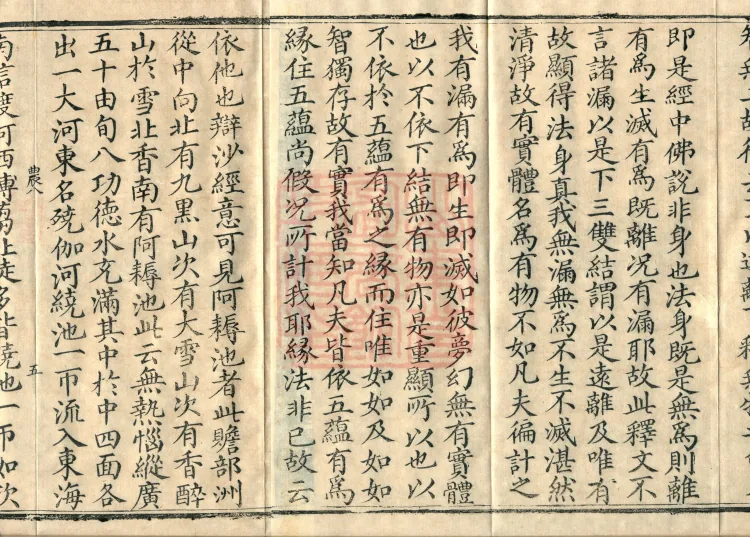 即是經中佛說非身也法身既是無為則離
有為生滅有為既離况有漏耶故此釋文不
言諸漏以是下三雙結謂以是遠離及唯有
故顯得法身真我無漏無為不生不滅湛然
清淨故有實體名為有物不如凡夫徧計之
我有漏有為即生即滅如彼夢幻無有實體
也以不依下結無有物亦是重顯所以也以
不依於五蘊有為之緣而住唯如如及如如
智獨存故有實我當知凡夫皆依五蘊有為
緣住五蘊尚假况所計我耶緣法非已故云
依他也辯沙經意可見阿耨池者此贍部洲
從中向北有九黑山次有大雪山次有香醉
山於雪北香南有阿耨池此云無熱惱縱廣
五十由旬八功德水充滿其中於中四面各
出一大河東名殑伽河繞池一帀流入東海
農八 五
南信度河西縛芻北徙多皆繞池一帀如次